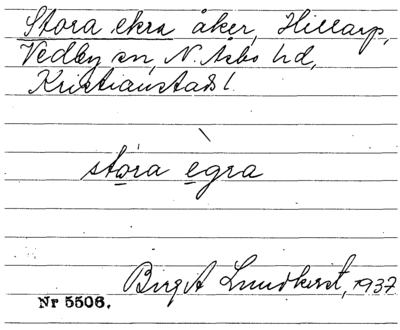 Stora ekra åker, Hillarp,
Vedby sn, N. Åsbo hd,
Kristianstads l.
stora egra
Birgit Lundkvist, 1937
Nr 5506.